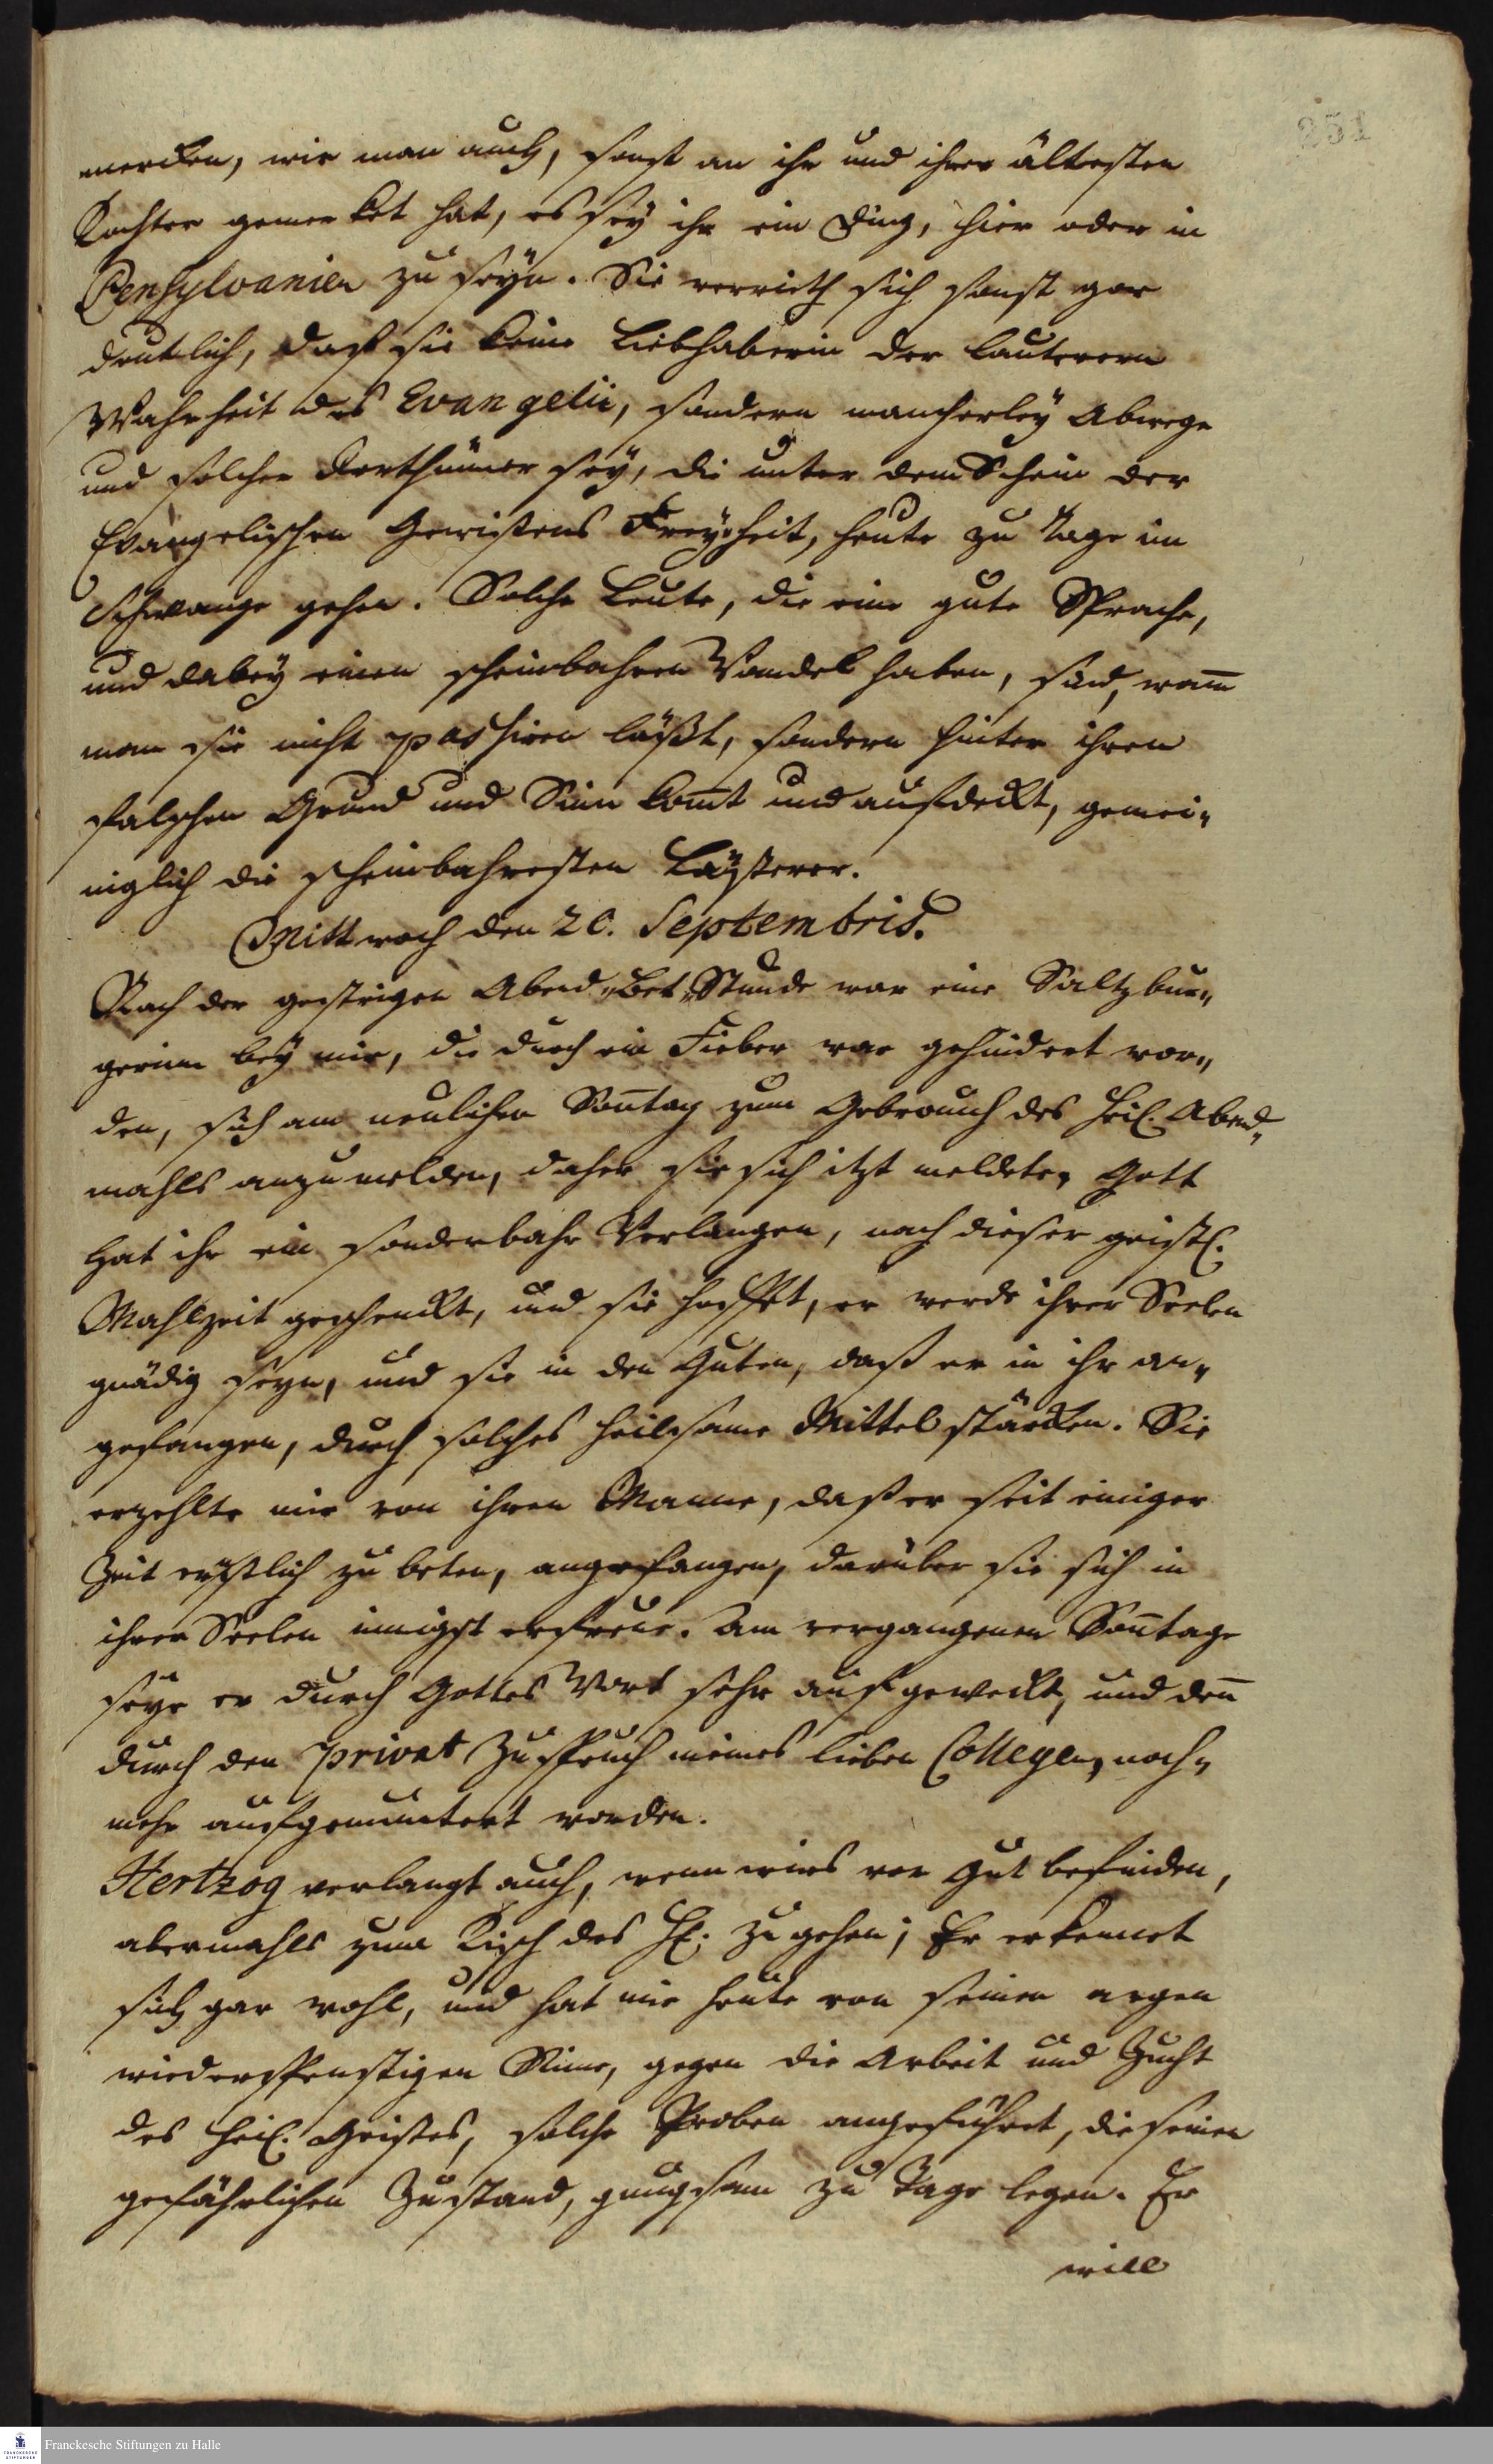 251
mercken, wie man auch, sonst an ihr und ihrer ältesten
Tochter gemercket hat, es sey ihr ein Ding, hier oder in
Pensylvanien zu seyn. Sie verrieth sich sonst gar
deutlich, daß sie keine Liebhaberin der lauteren
Wahrheit des Evangelii, sondern mancherley Abwege
und solcher Irrthümer sey, die unter dem Schein der
Evangelischen Gewißens Freyheit, heute zu Tage im
Schwange gehen. Solche Leute, die eine gute Sprache,
und dabey einen scheinbahren Wandel haben, sind, wann
man sie nicht passiren läßt, sondern hinter ihren
falschen Grund und Sinn komt und aufdeckt, gemei-
niglich die scheinbahresten Lästerer.
Mittwoch den 20. Septembris.
Nach der gestrigen Abend-Bet-Stunde war eine Saltzbur-
gerinn bey mir, die durch ein Fieber war gehindert wor-
den, sich am neulichen Sontag zum Gebrauch des Heil. Abend-
mahls anzumelden, daher sie sich itzt meldete, Gott
hat ihr ein sonderbahr Verlangen, nach dieser geistl.
Mahlzeit geschenckt, und sie hoffet, er werde ihrer Seelen
gnädig seyn, und sie in den Guten, daß er in ihr an-
gefangen, durch solches heilsame Mittel stärcken. Sie
erzehlte mir von ihren Manne, daß er seit einiger
Zeit ernstlich zu beten, angefangen, darüber sie sich in
ihrer Seelen innigst erfreue. Am vergangenen Sontage
seye er durch Gottes Wort sehr aufgeweckt, und den
durch den privat Zuspruch meines lieben Collegen, noch-
mehr aufgemuntert worden.
Hertzog verlangt auch, wenn wirs vor gut befinden,
abermahls zum Tisch des H. zu gehen; Er erkennet
sich gar wohl, und hat mir heute von seinen argen
wiederspenstigen Sinne, gegen die Arbeit und Zucht
des Heil. Geistes, solche Proben angeführet, die seinen
gefährlichen Zustand, gnugsam zu Tage legen. Er
will
Franckesche Stiftungen zu Halle